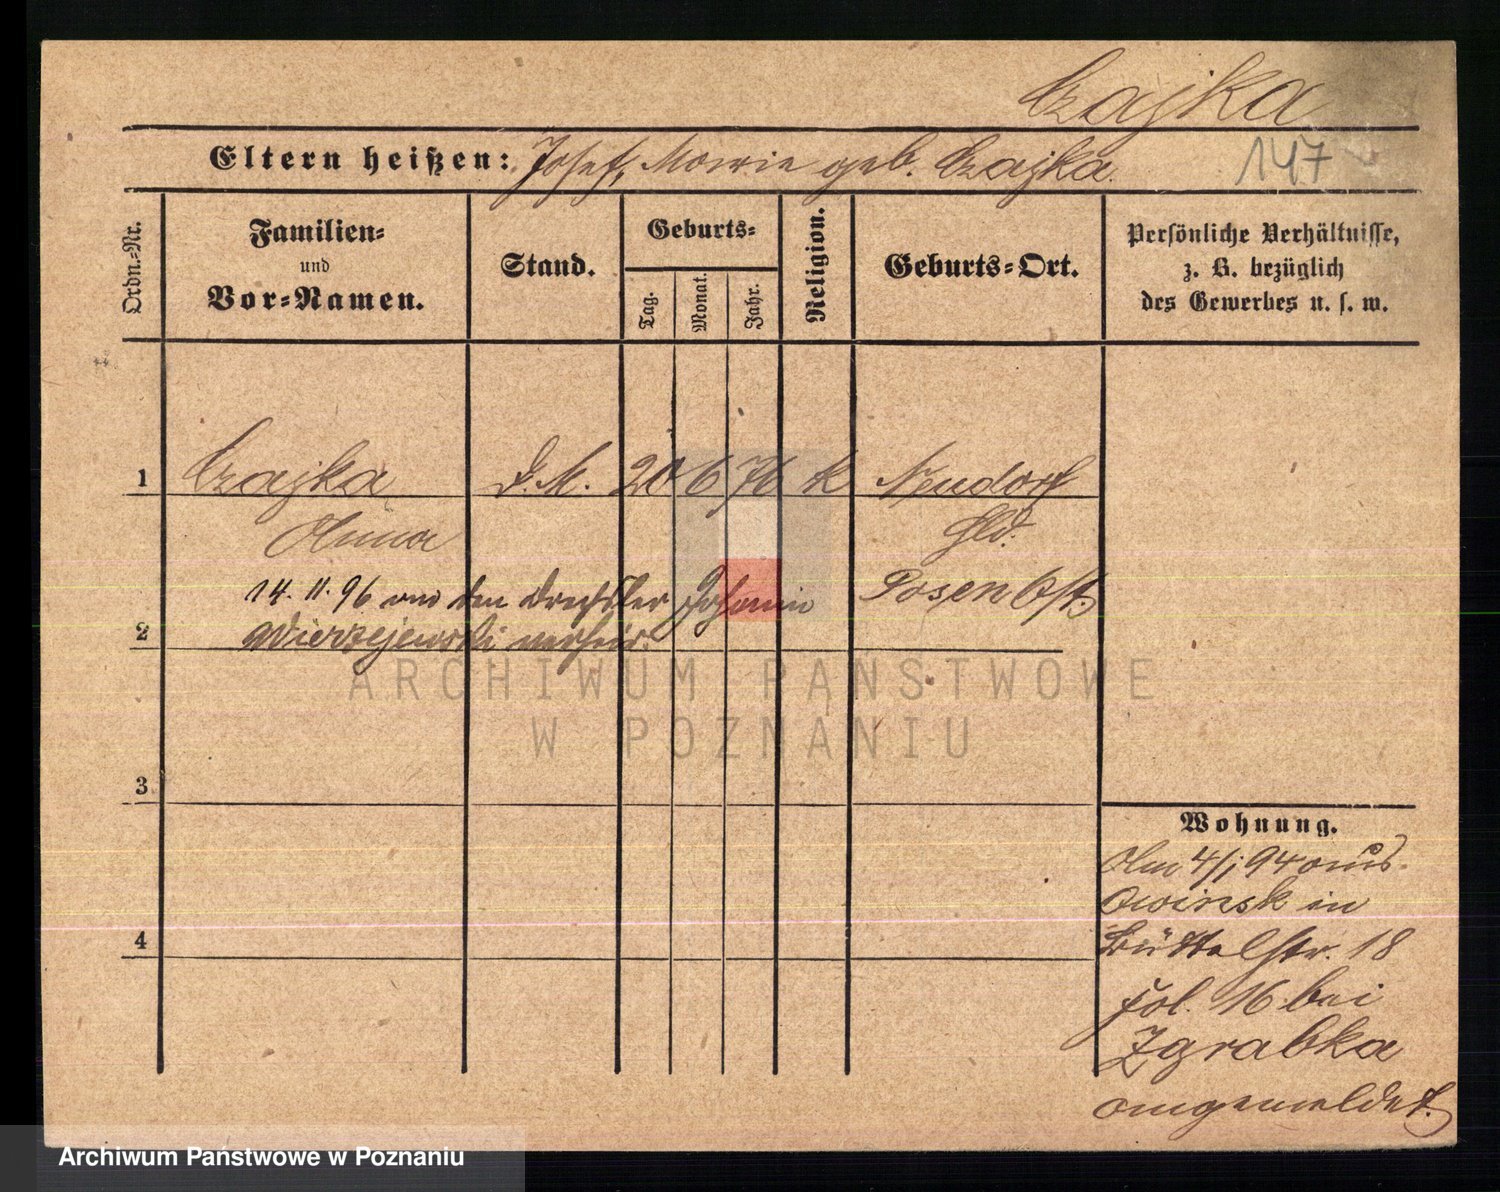 Czajka
Eltern heißen: Josef, Marie geb. Czajka.
147
Ordn.-Nr.
Familien-
und
Vor-Namen.
Stand.
Geburts-
Tag.
Monat.
Jahr.
Religion.
Geburts-Ort.
Persönliche Verhältnisse,
z. B. bezüglich
des Gewerbes u. s. w.
1
Czajka
D. M. 20 6 76 k Neudorf
Anna
Gld.
14. 11. 96 an den Drechsler Johann
Posen Ost
2
Wierzejewski verheir.
ARCHIWUM PAŃSTWOWE
W POZNANIU
3
4
Wohnung.
Am 4/1 94 aus
Owinsk in
Büttelstr. 18
fol. 16 bei
Zgrabka
angemeldet.
Archiwum Państwowe w Poznaniu